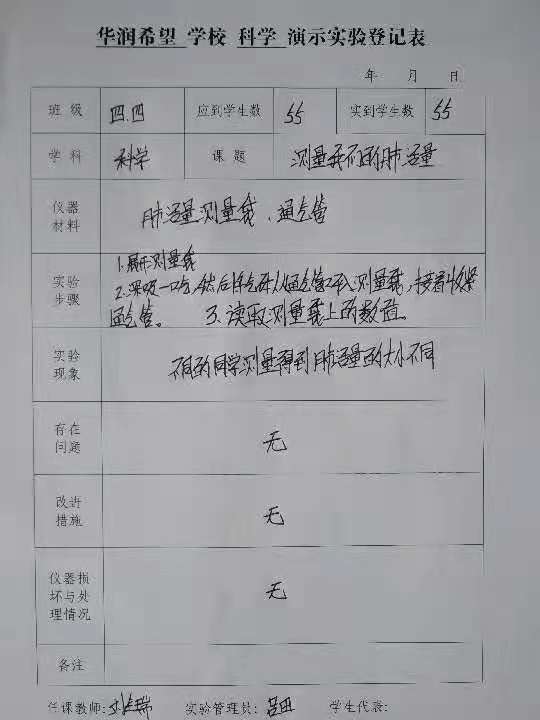 华润希望 学校 科学 演示实验登记表
年 月 日
班级 四.四 应到学生数 55 实到学生数 55
学科 科学 课题 测量我们的肺活量
仪器材料 肺活量测量袋、通气管
实验步骤 1.展开测量袋
2.深吸一口气,然后将气体从通气管吹入测量袋,接着收紧
通气管。 3.读取测量袋上的数值。
实验现象 不同的同学测量得到肺活量的大小不同
存在问题 无
改进措施 无
仪器损坏与处理情况 无
备注
任课教师: 实验管理员: 吕田 学生代表: